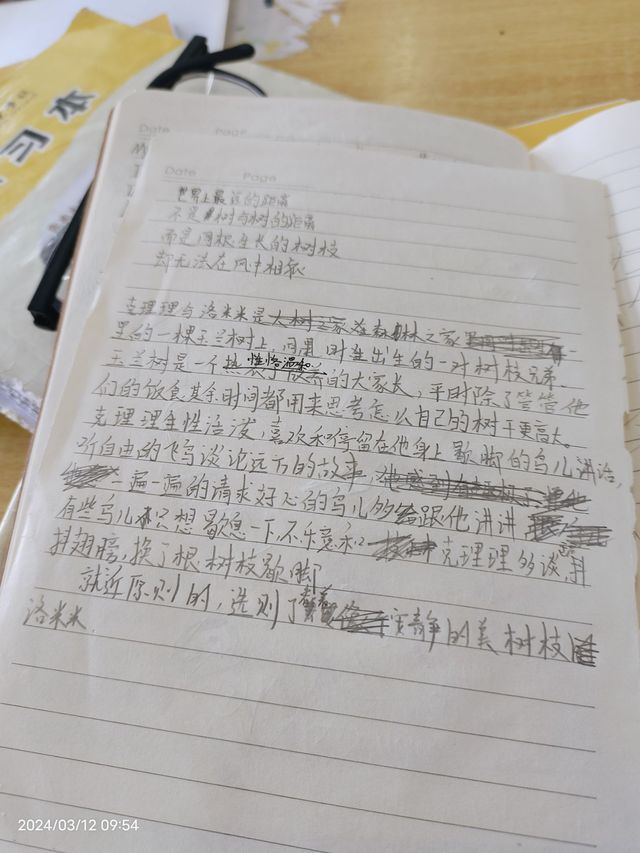 习本
Date Page
Date Page
世界上最远的距离
不是树与树的距离
而是同根生长的树枝
却无法在风中相依
克理理与洛米米是大树之家在森林之家里
里的一棵玉兰树上,同月同时生出生的一对树枝兄弟
玉兰树是一个 性格温和 的大家长,平时除了管管他
们的饮食其余时间都用来思考怎么让自己的树干更高大。
克理理生性活泼,喜欢和停留在他身上歇脚的鸟儿讲话,
听自由的飞鸟谈论远方的故事,
一遍一遍的请求好心的鸟儿能够跟他讲讲
有些鸟儿只想歇息一下不乐意和克理理多谈,抖
抖翅膀,换了根树枝歇脚
就近原则的,选则了安静的美树枝
洛米米
2024/03/12 09:54